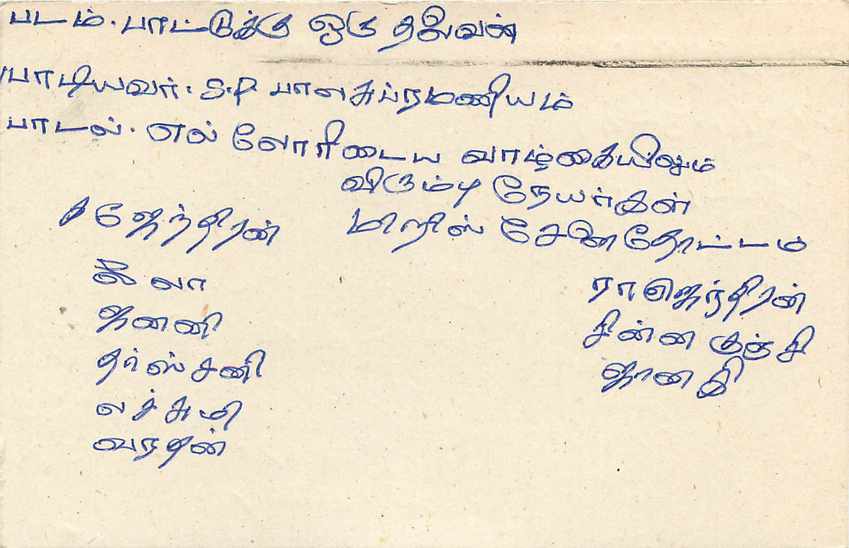 படம். பாட்டுக்கு ஒரு தலைவன்
பாடியவர். S.P பாலசுப்ரமணியம்
பாடல். எல்லோரிடைய வாழ்கையிலும்
விரும்பி நேயர்கள்
ஜேந்திரன்
மிறிஸ் சேனைதோட்டம்
கலா
ஜனனி
தர்ஸ்சனி
லச்சுமி
வரதன்
ராஜெந்திரன்
சின்ன குஞ்சி
ஜானகி